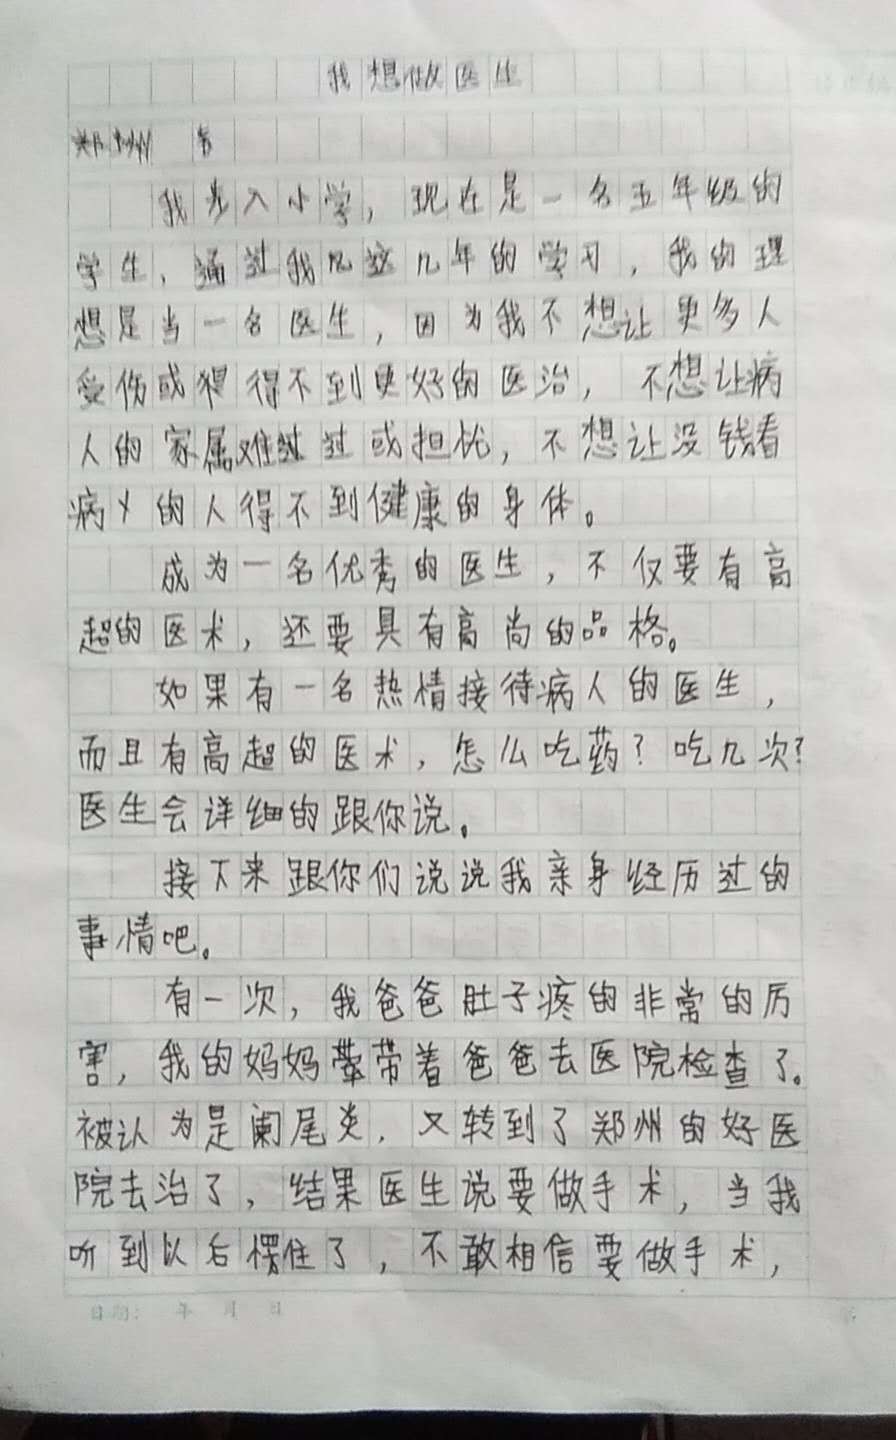 我想做医生
郑州
我步入小学，现在是一名五年级的
学生，通过我这几年的学习，我的理
想是当一名医生，因为我不想让更多人
受伤或得不到更好的医治，不想让病
人的家属难过或担忧，不想让没钱看
病的人得不到健康的身体。
成为一名优秀的医生，不仅要有高
超的医术，还要具有高尚的品格。
如果有一名热情接待病人的医生，
而且有高超的医术，怎么吃药？吃几次？
医生会详细的跟你说。
接下来跟你们说说我亲身经历过的
事情吧。
有一次，我爸爸肚子疼的非常的厉
害，我的妈妈带着爸爸去医院检查了。
被认为是阑尾炎，又转到了郑州的好医
院去治了，结果医生说要做手术，当我
听到以后愣住了，不敢相信要做手术，
日期： 年 月 日